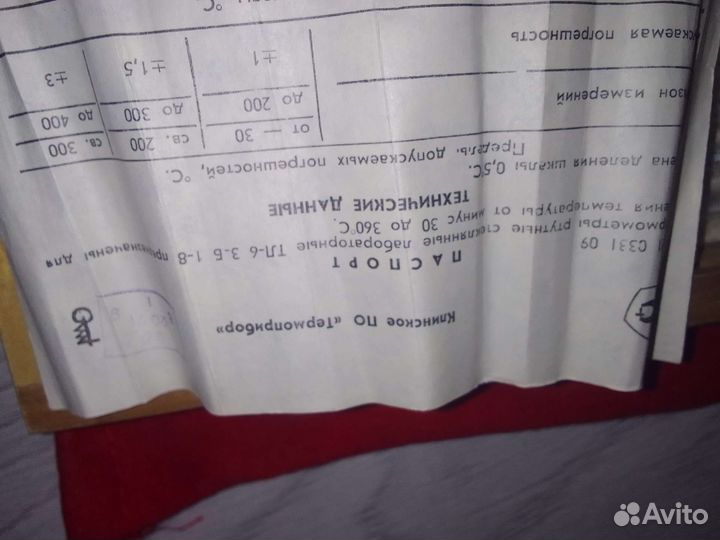 Клинское ПО «Термоприбор»
ПАСПОРТ
С331 09
рмометры ртутные стеклянные лабораторные ТЛ-6 3-Б 1-8 предназначены для
ения температуры от минус 30 до 360°С.
ТЕХНИЧЕСКИЕ ДАННЫЕ
ена деления шкалы 0,5°С.
Пределы допускаемых погрешностей, °С.
зон измерений
от — 30 св. 200 св. 300
до 200 до 300 до 400
скаемая погрешность ±1 ±1,5 ±3
°С.
Avito